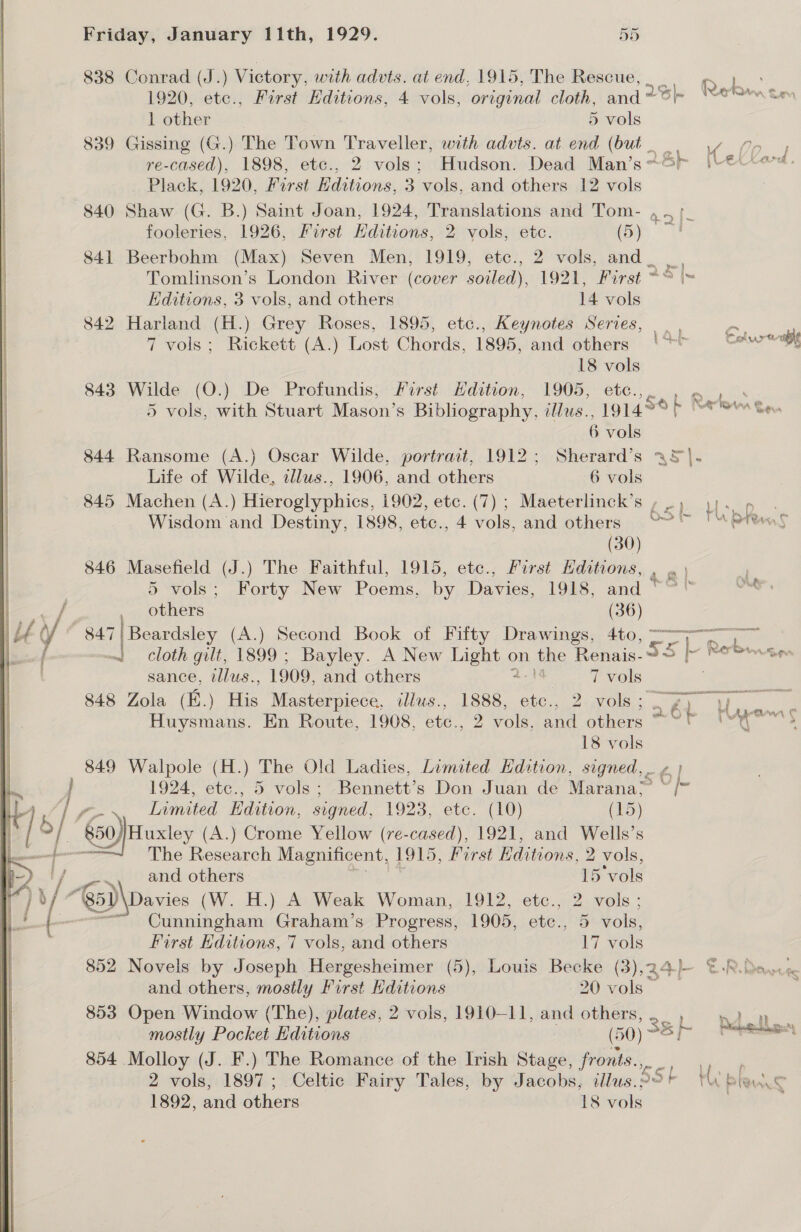 Friday, January 11th, 1929. 55
838 Conrad (J.) Victory, with advts. at end, 1915, The Rescue,
1920, etc., First Editions, 4 vols, original cloth, and 28/-
1 other 5 vols
839 Gissing (G.) The Town Traveller, with advts. at end (but
re-cased), 1898, etc., 2 vols; Hudson. Dead Man's 28/-
Plack, 1920, First Editions, 3 vols, and others 12 vols
840 Shaw (G. B.) Saint Joan, 1924, Translations and Tom-
fooleries, 1926, First Editions, 2 vols, etc. (5)
841 Beerbohm (Max) Seven Men, 1919, etc., 2 vols, and
Tomlinson's London River (cover soiled), 1921, First 28/-
Editions, 3 vols, and others 14 vols
842 Harland (H.) Grey Roses, 1895, etc., Keynotes Series,
7 vols; Rickett (A.) Lost Chords, 1895, and others 14/-
18 vols
843 Wilde (O.) De Profundis, First Edition, 1905, etc.,
5 vols, with Stuart Mason's Bibliography, illus., 1914
6 vols
844 Ransome (A.) Oscar Wilde, portrait, 1912; Sherard's
Life of Wilde, illus., 1906, and others 6 vols
845 Machen (A.) Hieroglyphics, 1902, etc. (7); Maeterlinck's
Wisdom and Destiny, 1898, etc., 4 vols, and others
(30)
846 Masefield (J.) The Faithful, 1915, etc., First Editions,
5 vols; Forty New Poems, by Davies, 1918, and
others (36)
847 Beardsley (A.) Second Book of Fifty Drawings, 4to,
cloth gilt, 1899; Bayley. A New Light on the Renais- 55/-
sance, illus., 1909, and others 7 vols
848 Zola (E.) His Masterpiece, illus., 1888, etc., 2 vols;
Huysmans. En Route, 1908, etc., 2 vols, and others
18 vols
849 Walpole (H.) The Old Ladies, Limited Edition, signed,
1924, etc., 5 vols; Bennett's Don Juan de Marana,
Limited Edition, signed, 1923, etc. (10) (15)
850 Huxley (A.) Crome Yellow (re-cased), 1921, and Wells's
The Research Magnificent, 1915, First Editions, 2 vols,
and others 15 vols
851 Davies (W. H.) A Weak Woman, 1912, etc., 2 vols;
Cunningham Graham's Progress, 1905, etc., 5 vols,
First Editions, 7 vols, and others 17 vols
852 Novels by Joseph Hergesheimer (5), Louis Becke (3), 24/-
and others, mostly First Editions 20 vols
853 Open Window (The), plates, 2 vols, 1910–11, and others,
mostly Pocket Editions (50) 38/-
854 Molloy (J. F.) The Romance of the Irish Stage, fronts.,
2 vols, 1897; Celtic Fairy Tales, by Jacobs, illus.
1892, and others 18 vols